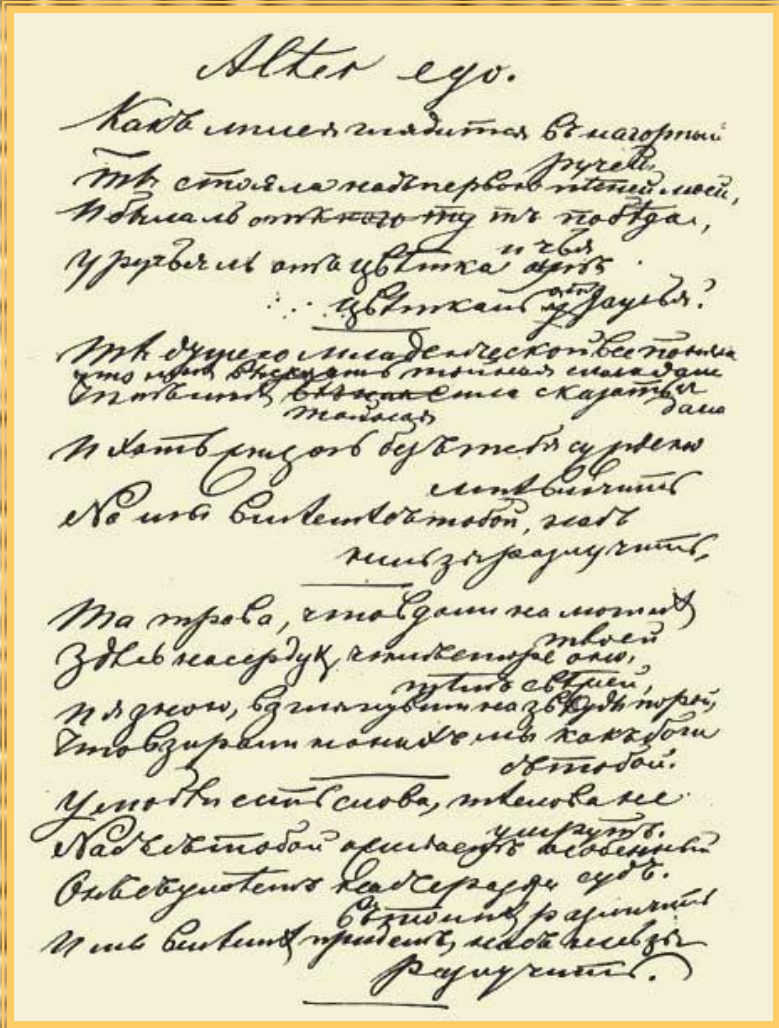 Alter ego.
Какъ лилея глядится въ нагорный
ручей,
Ты стояла надъ первою пѣсней моей,
И была ль тутъ побѣда,
и чья
У ручья ль отъ цвѣтка
цвѣтка ль отъ ручья?
Ты душею младенческой все поняла
что мнѣ высказать тайная сила дала
сила сказать
тайная дала
И хоть жизнь безъ тебя суждено
мнѣ влачить
Но мы вмѣстѣ съ тобой, насъ
нельзя разлучить,
Та трава, что вдали на могилѣ
твоей
Здѣсь на сердцѣ, чѣмъ старе оно,
тѣмъ свѣжей,
И я знаю, взглянувши на звѣзды порой,
Что взирали на нихъ мы какъ боги
съ тобой.
У любви есть слова, тѣ слова не
умрутъ.
Насъ съ тобой ожидаетъ особенный
судъ.
Онъ съумѣетъ насъ сразу
въ толпѣ различить
И мы вмѣстѣ придемъ, насъ нельзя
разлучить.